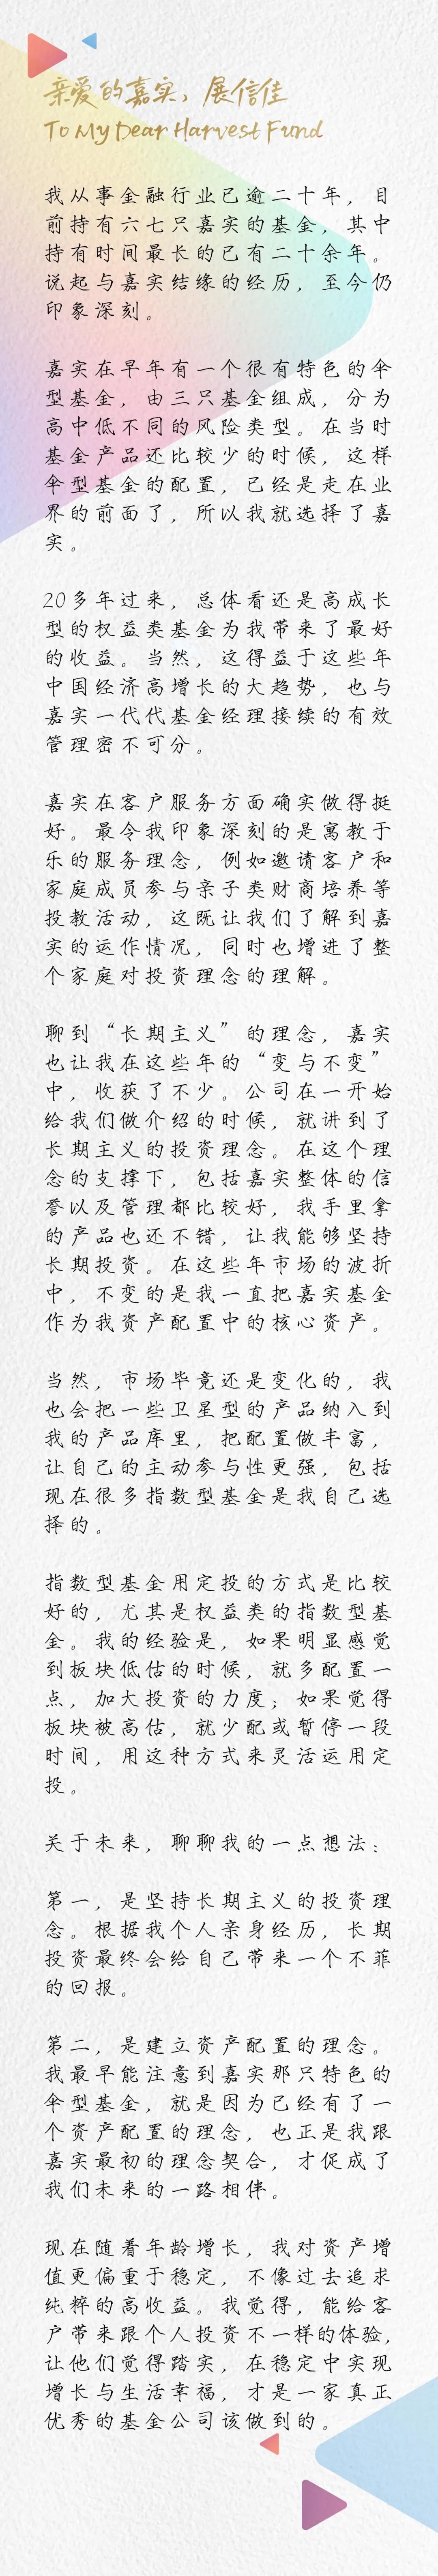 亲爱的嘉实，展信佳
To My Dear Harvest Fund
我从事金融行业已逾二十年，目
前持有六七只嘉实的基金，其中
持有时间最长的已有二十余年。
说起与嘉实结缘的经历，至今仍
印象深刻。
嘉实在早年有一个很有特色的伞
型基金，由三只基金组成，分为
高中低不同的风险类型。在当时
基金产品还比较少的时候，这样
伞型基金的配置，已经是走在业
界的前面了，所以我就选择了嘉
实。
20多年过来，总体看还是高成长
型的权益类基金为我带来了最好
的收益。当然，这得益于这些年
中国经济高增长的大趋势，也与
嘉实一代代基金经理接续的有效
管理密不可分。
嘉实在客户服务方面确实做得挺
好。最令我印象深刻的是寓教于
乐的服务理念，例如邀请客户和
家庭成员参与亲子类财商培养等
投教活动，这既让我们了解到嘉
实的运作情况，同时也增进了整
个家庭对投资理念的理解。
聊到“长期主义”的理念，嘉实
也让我在这些年的“变与不变”
中，收获了不少。公司在一开始
给我们做介绍的时候，就讲到了
长期主义的投资理念。在这个理
念的支撑下，包括嘉实整体的信
誉以及管理都比较好，我手里拿
的产品也还不错，让我能够坚持
长期投资。在这些年市场的波折
中，不变的是我一直把嘉实基金
作为我资产配置中的核心资产。
当然，市场毕竟还是变化的，我
也会把一些卫星型的产品纳入到
我的产品库里，把配置做丰富，
让自己的主动参与性更强，包括
现在很多指数型基金是我自己选
择的。
指数型基金用定投的方式是比较
好的，尤其是权益类的指数型基
金。我的经验是，如果明显感觉
到板块低估的时候，就多配置一
点，加大投资的力度；如果觉得
板块被高估，就少配或暂停一段
时间，用这种方式来灵活运用定
投。
关于未来，聊聊我的一点想法：
第一，是坚持长期主义的投资理
念。根据我个人亲身经历，长期
投资最终会给自己带来一个不菲
的回报。
第二，是建立资产配置的理念。
我最早能注意到嘉实那只特色的
伞型基金，就是因为已经有了一
个资产配置的理念，也正是我跟
嘉实最初的理念契合，才促成了
我们未来的一路相伴。
现在随着年龄增长，我对资产增
值更偏重于稳定，不像过去追求
纯粹的高收益。我觉得，能给客
户带来跟个人投资不一样的体验，
让他们觉得踏实，在稳定中实现
增长与生活幸福，才是一家真正
优秀的基金公司该做到的。